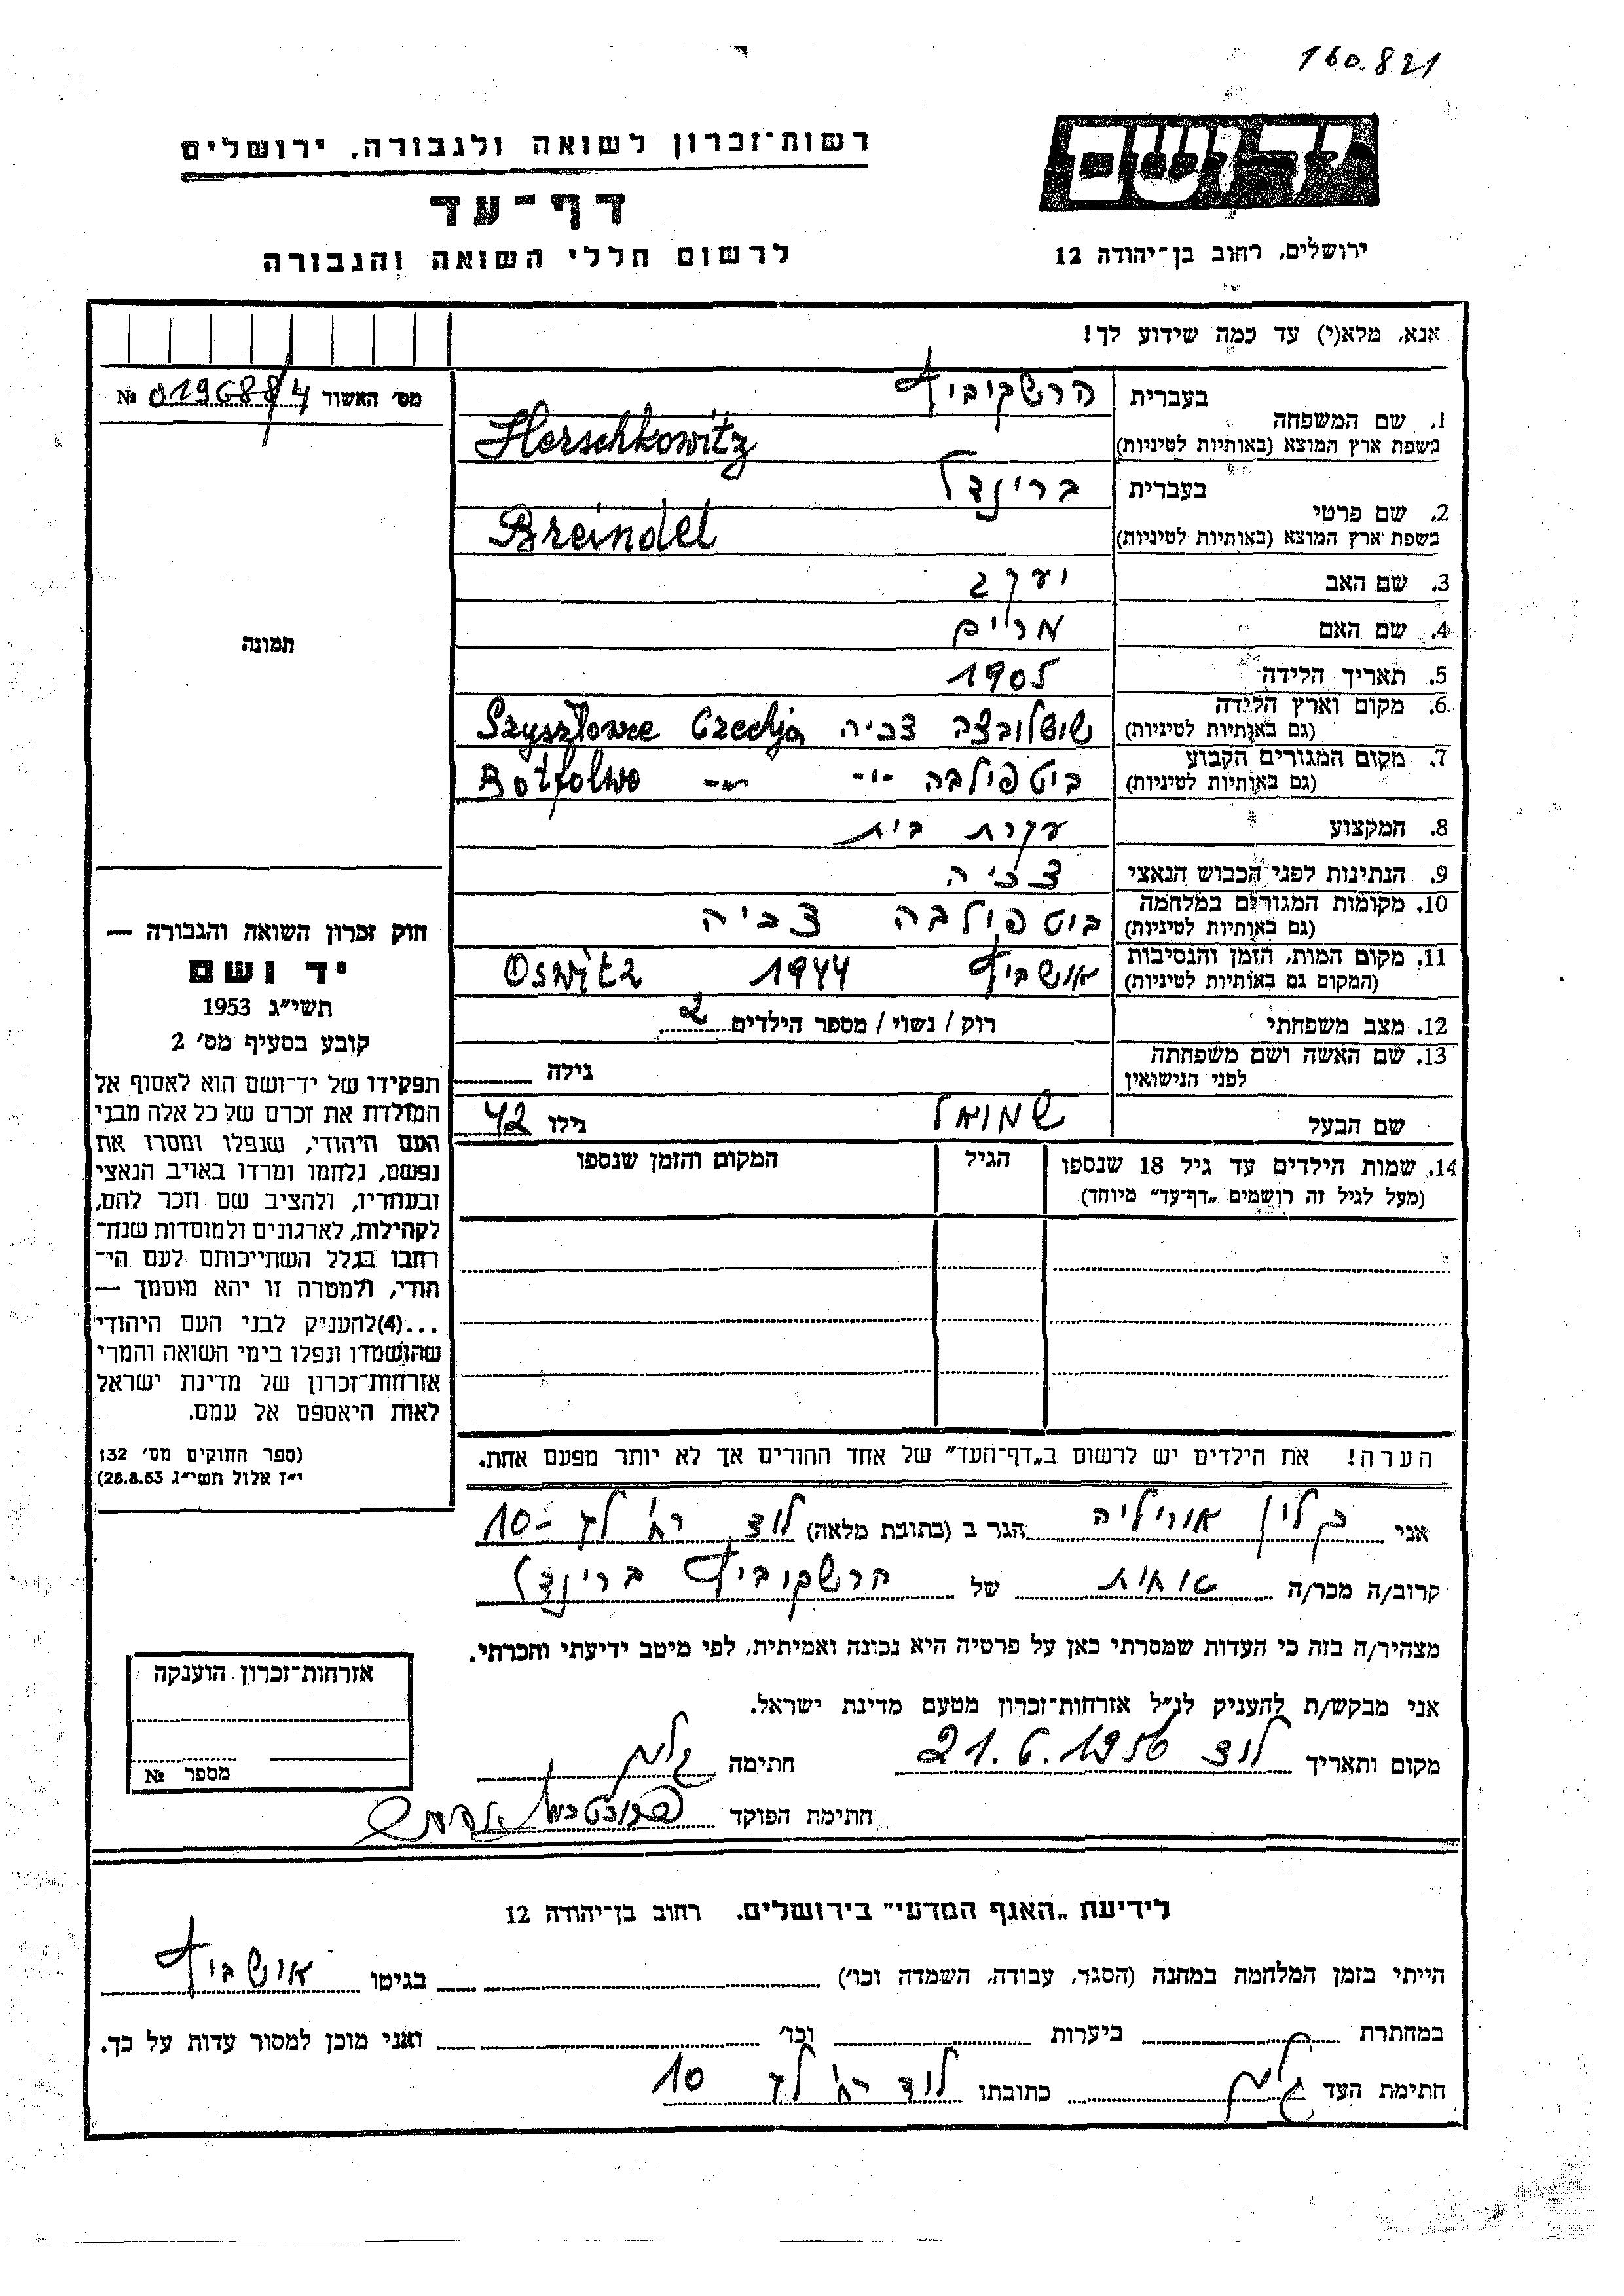 160.821
יד ושם
ירושלים, רחוב בן־יהודה 12
רשות־זכרון לשואה ולגבורה, ירושלים
דף־עד
לרשום חללי השואה והגבורה
אנא, מלא(י) עד כמה שידוע לך!
מס' האשור 0196884 №
תמונה
1. שם המשפחה בעברית הרשקוביץ
בשפת ארץ המוצא (באותיות לטיניות) Herschkowitz
2. שם פרטי בעברית בריינדל
בשפת ארץ המוצא (באותיות לטיניות) Breindel
3. שם האב יעקב
4. שם האם מרים
5. תאריך הלידה 1905
6. מקום וארץ הלידה
(גם באותיות לטיניות) שושלובצה צכיה Szyszlowce Czechja
7. מקום המגורים הקבוע
(גם באותיות לטיניות) בוטפולבה -״- -״- Botfolwo
8. המקצוע עקרת בית
9. הנתינות לפני הכבוש הנאצי צכיה
10. מקומות המגורים במלחמה
(גם באותיות לטיניות) בוטפולבה צכיה
11. מקום המות, הזמן והנסיבות
(המקום גם באותיות לטיניות) אושביץ 1944 Oswitz
12. מצב משפחתי רוק / נשוי / מספר הילדים 2
13. שם האשה ושם משפחתה
לפני הנישואין גילה
שם הבעל שמואל גילו 42
14. שמות הילדים עד גיל 18 שנספו הגיל המקום והזמן שנספו
(מעל לגיל זה רושמים „דף־עד״ מיוחד)
הערה! את הילדים יש לרשום ב„דף־העד״ של אחד ההורים אך לא יותר מפעם אחת.
חוק זכרון השואה והגבורה —
יד ושם
תשי״ג 1953
קובע בסעיף מס' 2
תפקידו של יד־ושם הוא לאסוף אל
המולדת את זכרם של כל אלה מבני
העם היהודי, שנפלו ומסרו את
נפשם, נלחמו ומרדו באויב הנאצי
ובעוזריו, ולהציב שם וזכר להם,
לקהילות, לארגונים ולמוסדות שנח־
רבו בגלל השתייכותם לעם הי־
הודי, ולמטרה זו יהא מוסמך —
...(4) להעניק לבני העם היהודי
שהושמדו ונפלו בימי השואה והמרי
אזרחות־זכרון של מדינת ישראל
לאות היאספם אל עמם.
(ספר החוקים מס' 132
י״ז אלול תשי״ג 28.8.53)
אני קלין אורליה הגר ב (כתובת מלאה) לוד רח' לז - 10
קרוב/ה מכר/ה אחות של הרשקוביץ בריינדל
מצהיר/ה בזה כי העדות שמסרתי כאן על פרטיה היא נכונה ואמיתית, לפי מיטב ידיעתי והכרתי.
אני מבקש/ת להעניק לנ״ל אזרחות־זכרון מטעם מדינת ישראל.
מקום ותאריך לוד 21.6.1956 חתימה
חתימת הפוקד
אזרחות־זכרון הוענקה
מספר №
לידיעת „האגף המדעי״ בירושלים. רחוב בן־יהודה 12
הייתי בזמן המלחמה במחנה (הסגר, עבודה, השמדה וכו') בגיטו אושביץ
במחתרת ביערות וכו' ואני מוכן למסור עדות על כך.
חתימת העד כתובתו לוד רח' לז 10